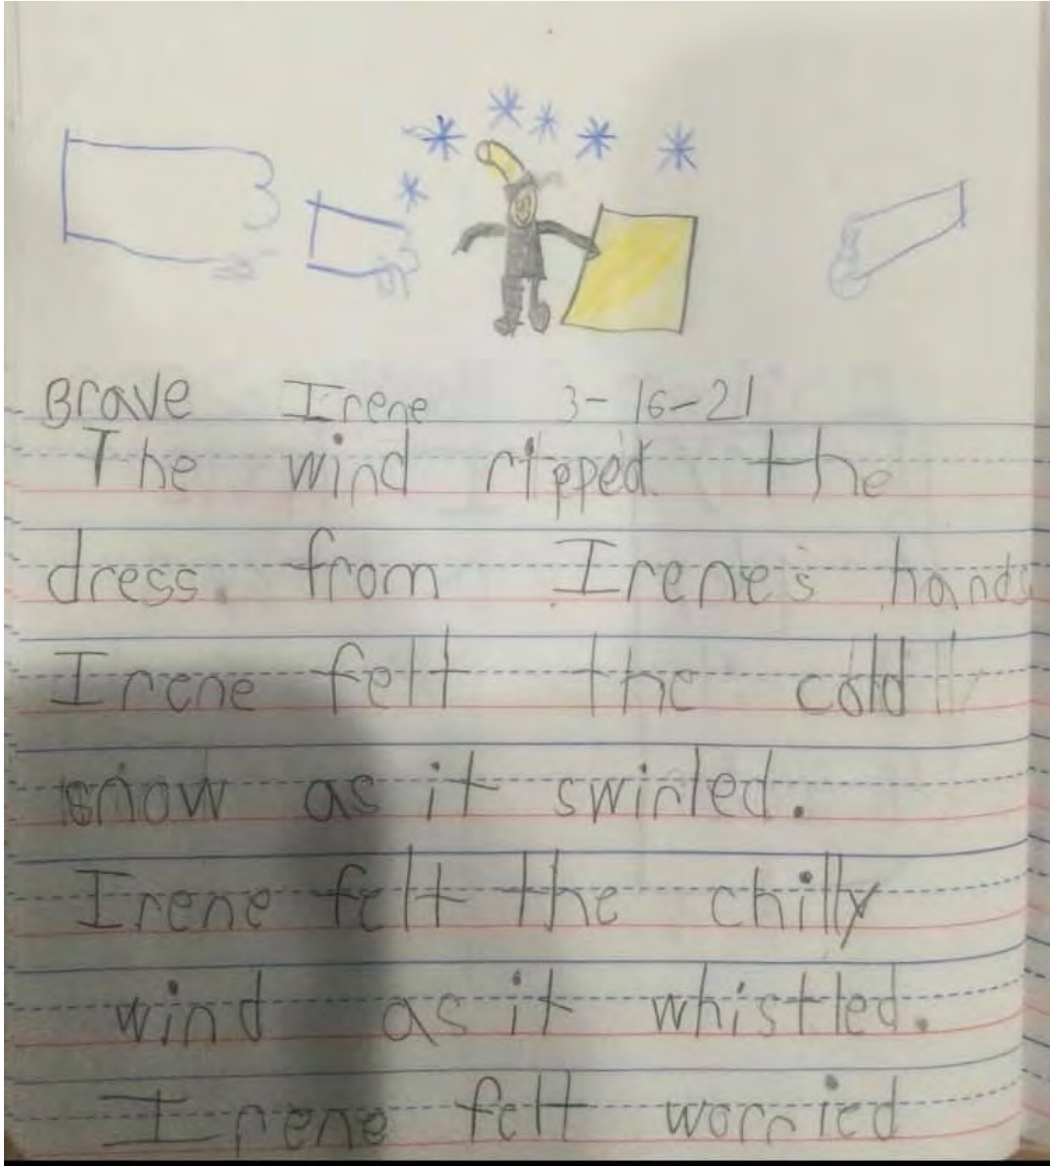 Brave Irene 3-16-21
The wind ripped. the
dress. from Irene's hands
Irene felt the cold
snow as it swirled.
Irene felt the chilly
wind as it whistled.
Irene felt worried